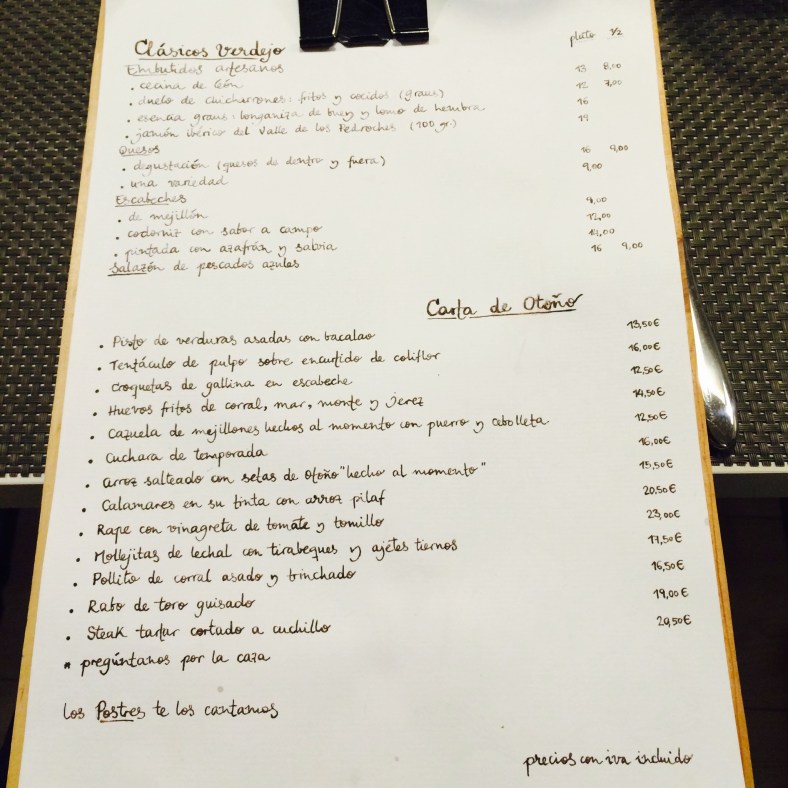 Clásicos Verdejo plato 1/2
Embutidos artesanos
• cecina de león 13 8,00
• duelo de chicharrones: fritos y cocidos (graus) 12 7,00
• esencia graus: longaniza de buey y lomo de hembra 16
• jamón ibérico del Valle de los Pedroches (100 gr.) 19
Quesos
• degustación (quesos de dentro y fuera) 16 9,00
• una variedad 9,00
Escabeches
• de mejillón 8,00
• codorniz con sabor a campo 12,00
• pintada con azafrán y sabia 14,00
Salazón de pescados azules 16 9,00
Carta de Otoño
• Pisto de verduras asadas con bacalao 13,50€
• Tentáculo de pulpo sobre encurtido de coliflor 16,00€
• Croquetas de gallina en escabeche 12,50€
• Huevos fritos de corral, mar, monte y Jerez 14,50€
• Cazuela de mejillones hechos al momento con puerro y cebolleta 12,50€
• Cuchara de temporada 16,00€
• Arroz salteado con setas de Otoño "hecho al momento" 15,50€
• Calamares en su tinta con arroz pilaf 20,50€
• Rape con vinagreta de tomate y tomillo 23,00€
• Mollejitas de lechal con tirabeques y ajetes tiernos 17,50€
• Pollito de corral asado y trinchado 16,50€
• Rabo de toro guisado 19,00€
• Steak tartar cortado a cuchillo 20,50€
* pregúntanos por la caza
Los Postres te los cantamos
precios con iva incluido